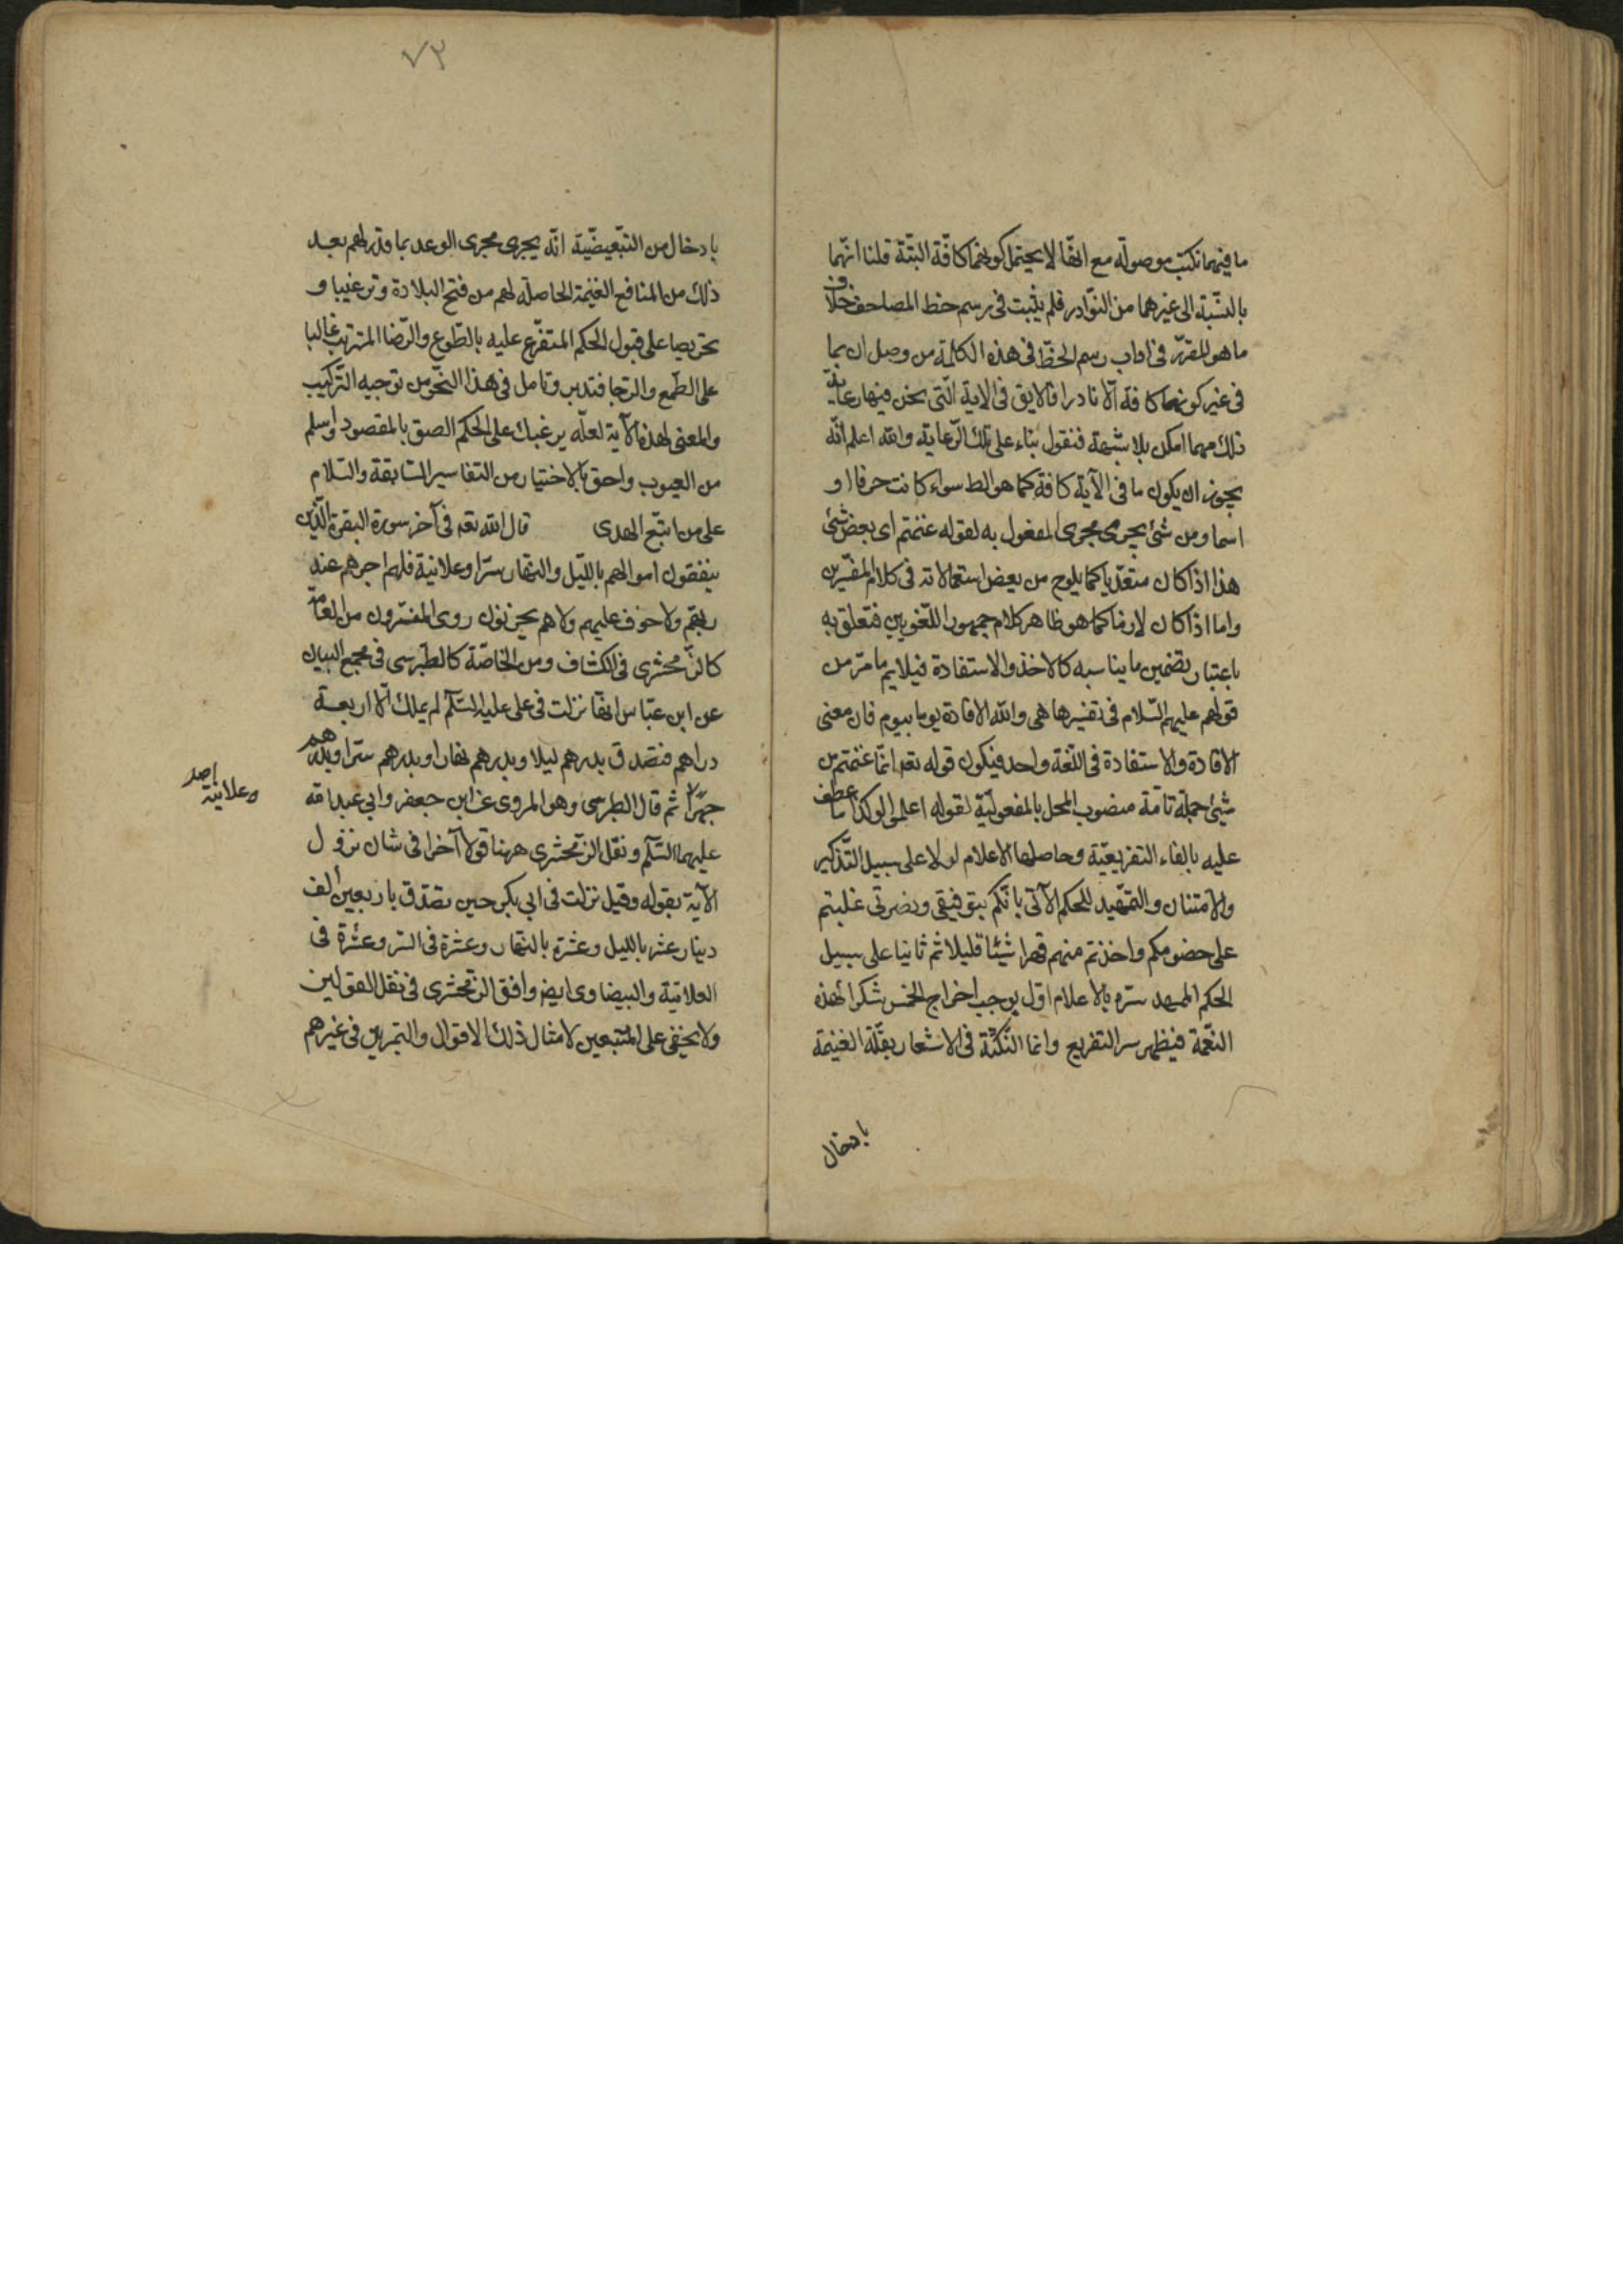 ما فيهما تكتب موصولة مع انها لا يحتمل كونهما كافّة البتّة قلنا انّهما
بالنسّبة الى غيرهما من النوّادر فلم يثبت فى رسم خط المصاحف خلاف
ما هو المقرّر فى اداب رسم الخطّ فى هذه الكلمة من وصل ان بما
فى غير كونها كافة الّا نادرا فالايق فى الاية الّتى نحن فيها رعاية
ذلك مهما امكن بلا شبهة فنقول بناء على تلك الرّعاية والله اعلم انّه
يجوز ان يكون ما فى الآية كافة كما هو الط سواء كانت حرفا او
اسما ومن شئ يجرى مجرى المفعول به لقوله غنمتم اى بعض شئ
هذا اذا كان متعدّيا كما يلوح من بعض استعمالاته فى كلام المفسّرين
واما اذا كان لازما كما هو ظاهر كلام جمهور اللّغويين فتعلق به
باعتبار تضمين ما يناسبه كالاخذ والاستفادة فيلايم ما مرّ من
قولهم عليهم السّلام فى تفسيرها هى والله الافادة يوما بيوم فان معنى
الافادة والاستفادة فى اللّغة واحد فيكون قوله تعه انّما غنمتم من
شيئ جملة تامّة منصوب المحل بالمفعوليّة لقوله اعلموا لو كذا ما عطف
عليه بالفاء التفريعيّة وحاصلها الاعلام اولا على سبيل التّذكير
والامتنان والتمّهيد للحكم الآتى بانّكم بتوفيقى ونصرتى غلبتم
على خصومكم واخذتم منهم قهرا شيئا قليلا ثم ثانيا على سبيل
الحكم الممهد سره بالاعلام اوّل بوجب اخراج الخمس شكرا لهذه
النعّمة فيظهر سر التفريع وانما النّكتة فى الاشعار بقلّة الغنيمة
بادخال
٧٣
بادخال من التبّعيضيّة انّه يجرى مجرى الوعد بما قدر لهم بعد
ذلك من المنافع الغنيمة الحاصلة لهم من فتح البلادة وترغيبا و
تحريصا على قبول الحكم المتفرّع عليه بالطّوع والرّضا المترتب غالبا
على الطّمع والرجا فتدبر وتامل فى هذا النحّو من توجيه التّركيب
والمعنى لهذه الآية لعلّه يرغبك على الحكم الصق بالمقصود واسلم
من العيوب واحق بالاختيار من التفاسير السّابقة والسّلام
على من اتبّع الهدى قال الله تعه فى آخر سورة البقرة الّذين
ينفقون اموالهم باللّيل والنهّار سرّا وعلانية فلهم اجرهم عند
ربّهم ولا خوف عليهم ولا هم يحزنون روى المفسّرون من العامّة
كالزّمخشرى فى الكشاف ومن الخاصّة كالطّبرسى فى مجمع البيان
عن ابن عبّاس انهّا نزلت فى على عليه السّلم لم يملك الّا اربعة
دراهم فتصدق بدرهم ليلا وبدرهم نهارا وبدرهم سرّا وبدرهم
جهرًا ثم قال الطبرسى وهو المروى عن ابى جعفر وابى عبد الله
وعلانية اصل
عليهما السّلم ونقل الزمّخشرى ههنا قولا آخرا فى شان نزول
الآية بقوله وقيل نزلت فى ابى بكر حين تصّدق باربعين الف
دينار عشر بالليل وعشرة بالنهّار وعشرة فى السّر وعشرة فى
العلانية والبيضاوى ايضه وافق الزمّخشرى فى نقل القولين
ولا يخفى على المتتبعين لامثال ذلك الاقوال والتمرين فى غيرهم